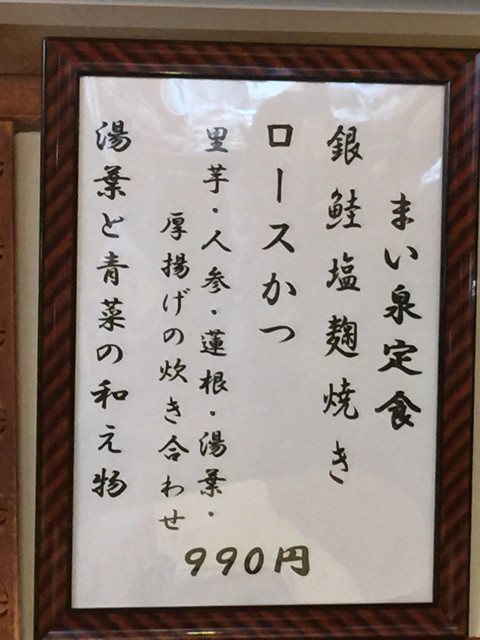 まい泉定食
銀鮭塩麹焼き
ロースかつ
里芋・人参・蓮根・湯葉・
厚揚げの炊き合わせ
湯葉と青菜の和え物
990円